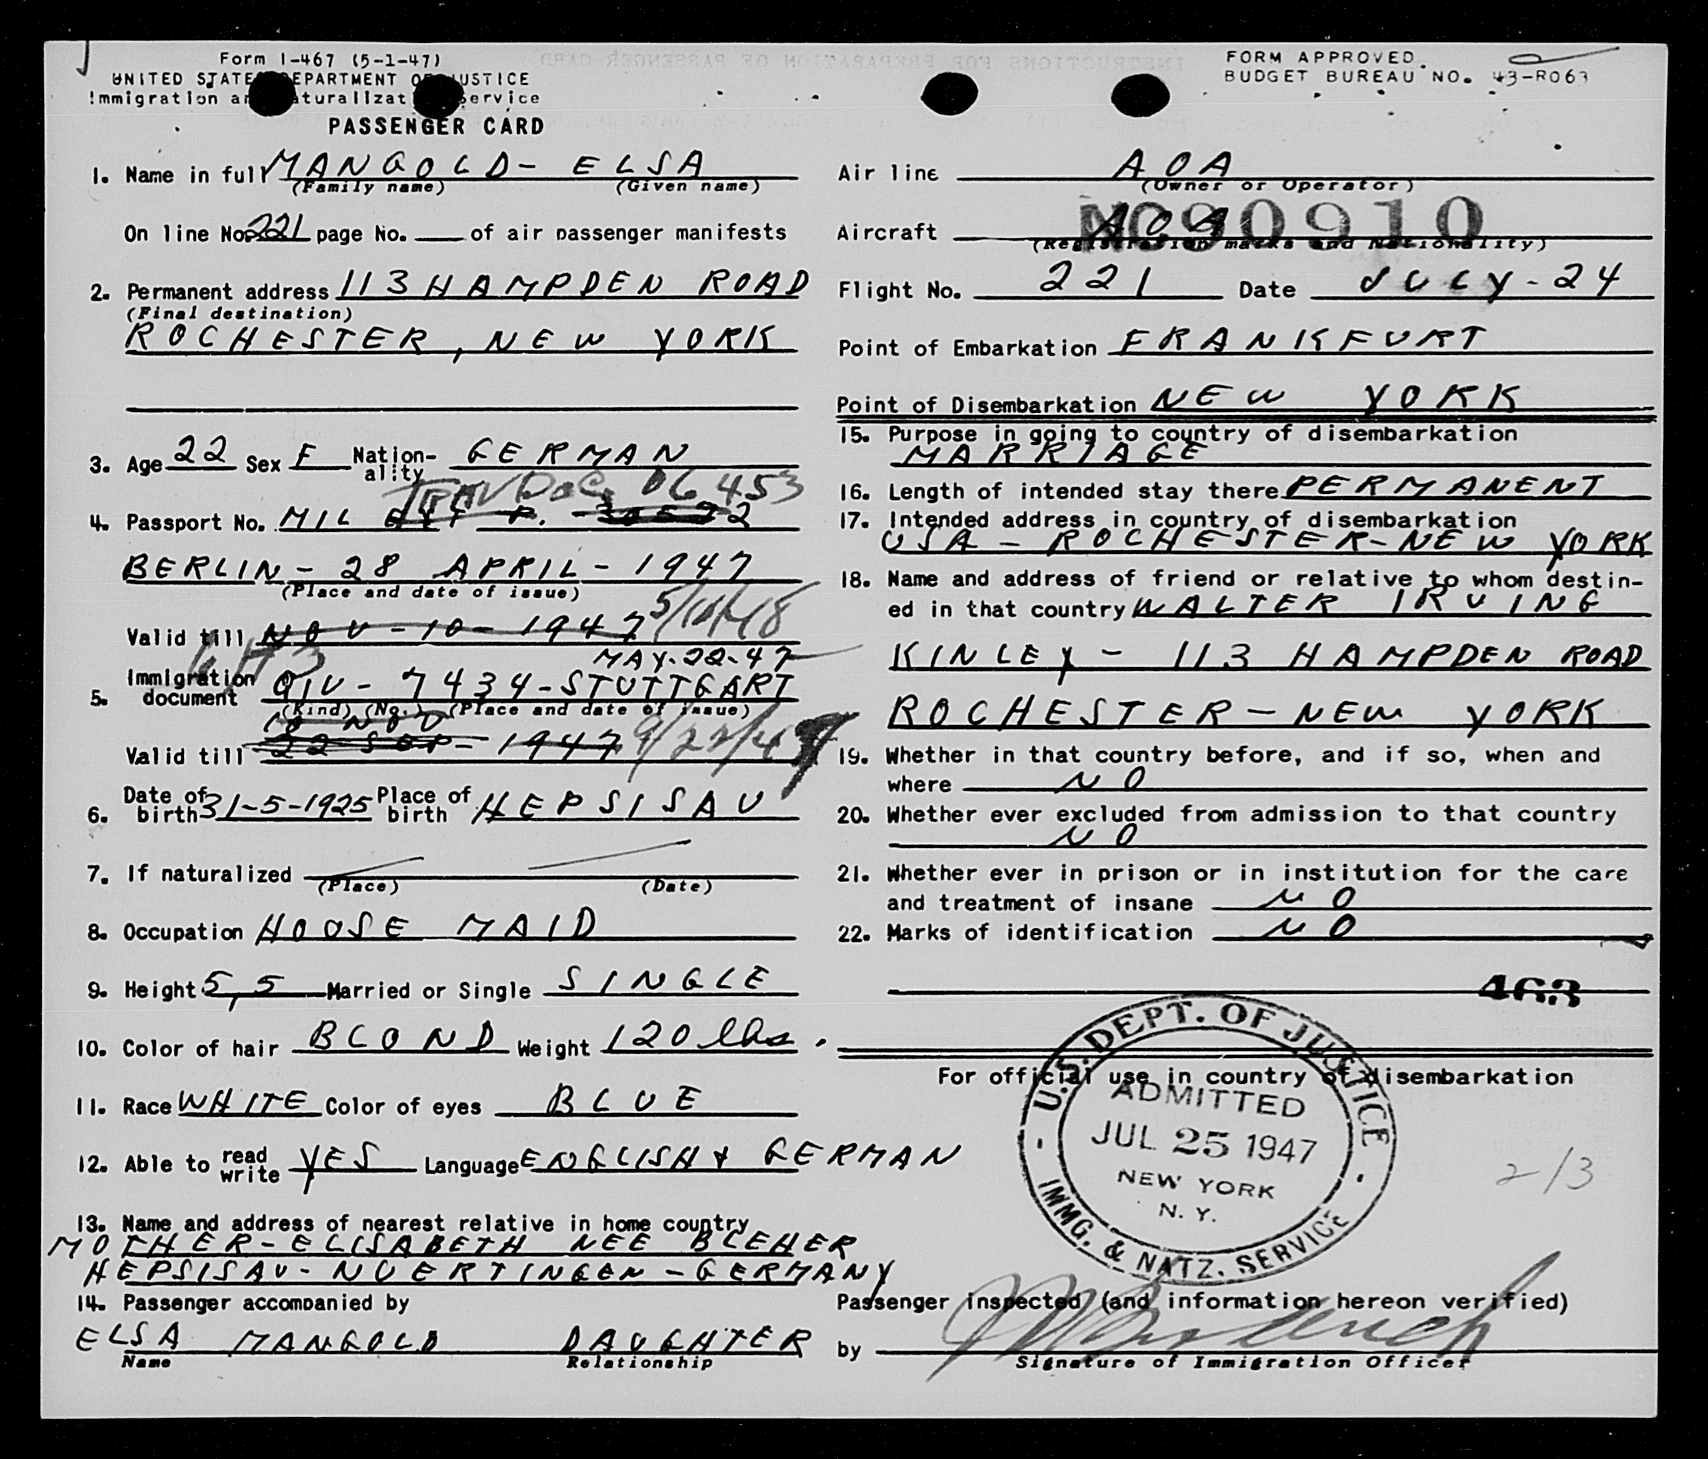 Form I-467 (5-1-47)
UNITED STATES DEPARTMENT OF JUSTICE
Immigration and Naturalization Service
PASSENGER CARD
FORM APPROVED.
BUDGET BUREAU NO. 43-R063
1. Name in full MANGOLD- ELSA
(Family name) (Given name)
On line No. 221 page No. of air passenger manifests
2. Permanent address 113 HAMPDEN ROAD
(Final destination)
ROCHESTER, NEW YORK
3. Age 22 Sex F Nation-ality GERMAN
TRAV DOC 06453
4. Passport No. MIL
BERLIN - 28 APRIL - 1947
(Place and date of issue)
Valid till NOV-10-1947 5/10/48
MAY-22-47
5. Immigration document QIV - 7434 - STUTTGART
(Kind) (No.) (Place and date of issue)
10 NOV
Valid till 22 SEP - 1947 9/22/47
6. Date of birth 31-5-1925 Place of birth HEPSISAU
7. If naturalized
(Place) (Date)
8. Occupation HOUSE MAID
9. Height 5,5 Married or Single SINGLE
10. Color of hair BLOND Weight 120 lbs.
11. Race WHITE Color of eyes BLUE
12. Able to read write YES Language ENGLISH & GERMAN
13. Name and address of nearest relative in home country
MOTHER - ELISABETH NEE BLEHER
HEPSISAU - NUERTINGEN - GERMANY
14. Passenger accompanied by
ELSA MANGOLD DAUGHTER
Name Relationship
Air line AOA
(Owner or Operator)
Aircraft AOA NC90910
(Registration marks and Nationality)
Flight No. 221 Date JULY-24
Point of Embarkation FRANKFURT
Point of Disembarkation NEW YORK
15. Purpose in going to country of disembarkation
MARRIAGE
16. Length of intended stay there PERMANENT
17. Intended address in country of disembarkation
USA - ROCHESTER - NEW YORK
18. Name and address of friend or relative to whom destin-
ed in that country WALTER IRVING
KINLEY - 113 HAMPDEN ROAD
ROCHESTER - NEW YORK
19. Whether in that country before, and if so, when and
where NO
20. Whether ever excluded from admission to that country
NO
21. Whether ever in prison or in institution for the care
and treatment of insane NO
22. Marks of identification NO
463
For official use in country of disembarkation
U.S. DEPT. OF JUSTICE
ADMITTED
JUL 25 1947
NEW YORK
N. Y.
IMMG. & NATZ. SERVICE
2/3
Passenger inspected (and information hereon verified)
by
Signature of Immigration Officer